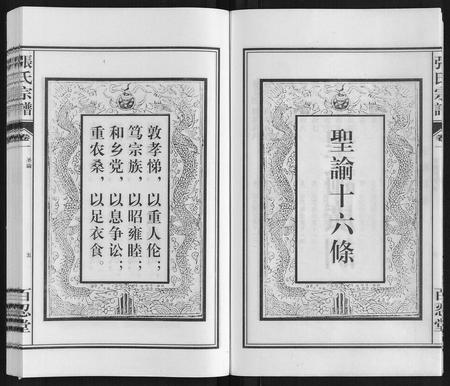 聖諭十六條
敦孝悌，以重人伦；
笃宗族，以昭雍睦；
和乡党，以息争讼；
重农桑，以足衣食。
張氏宗譜
卷
聖諭
五
百忍堂
張氏宗譜
卷
百忍堂